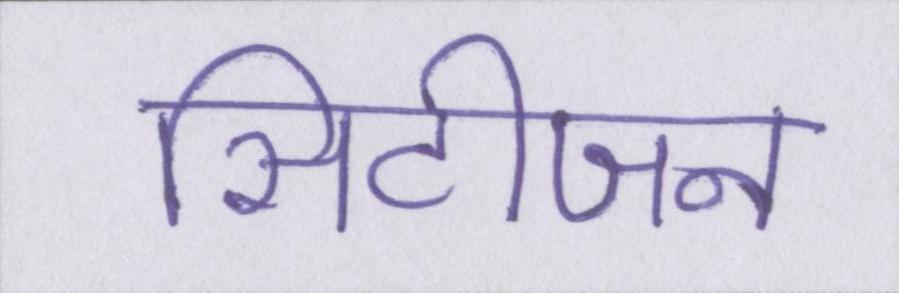 सिटीजन